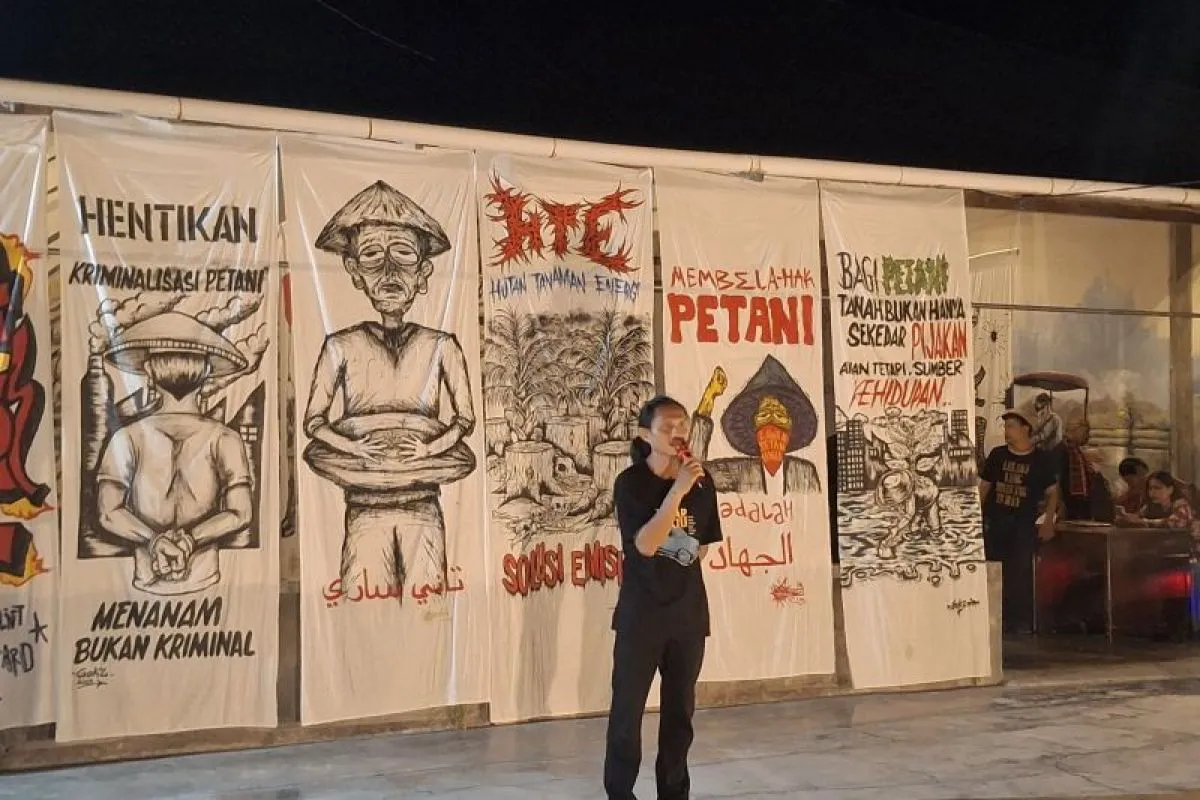 HENTIKAN
KRIMINALISASI PETANI
MENANAM
BUKAN KRIMINAL
تاني ساري
HTE
HUTAN TANAMAN ENERGI
SOLUSI EMISI
MEMBELA-HAK
PETANI
adalah
الجهاد
BAGI PETANI
TANAH BUKAN HANYA
SEKEDAR PIJAKAN
AKAN TETAPI SUMBER
KEHIDUPAN..